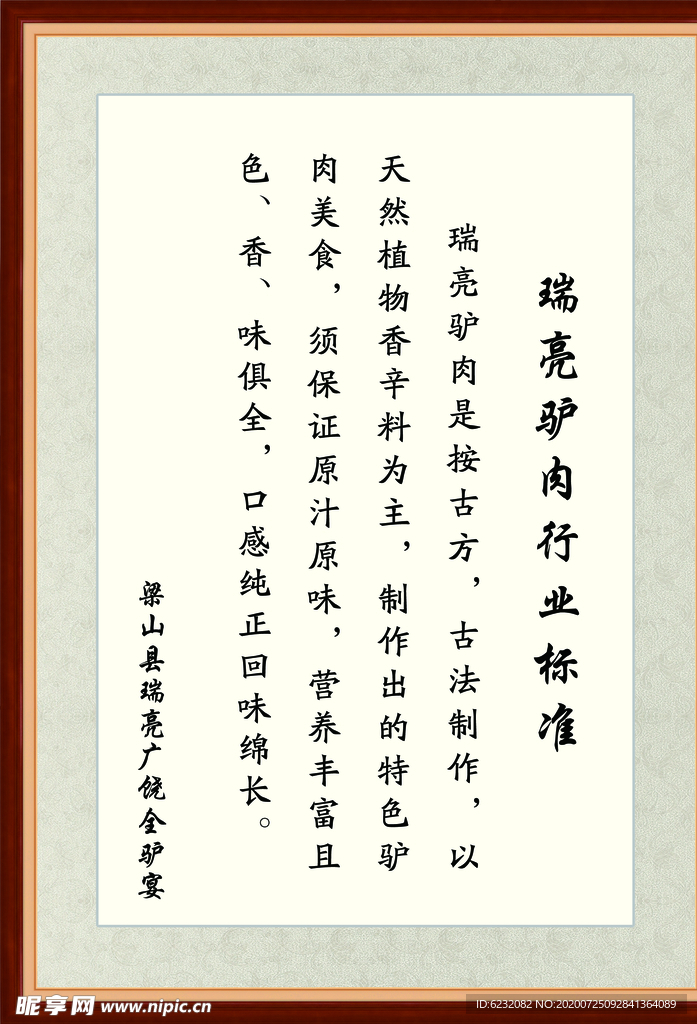 瑞亮驴肉行业标准
瑞亮驴肉是按古方，古法制作，以
天然植物香辛料为主，制作出的特色驴
肉美食，须保证原汁原味，营养丰富且
色、香、味俱全，口感纯正回味绵长。
梁山县瑞亮广饶全驴宴
昵享网 www.nipic.cn
ID:6232082 NO:20200725092841364089